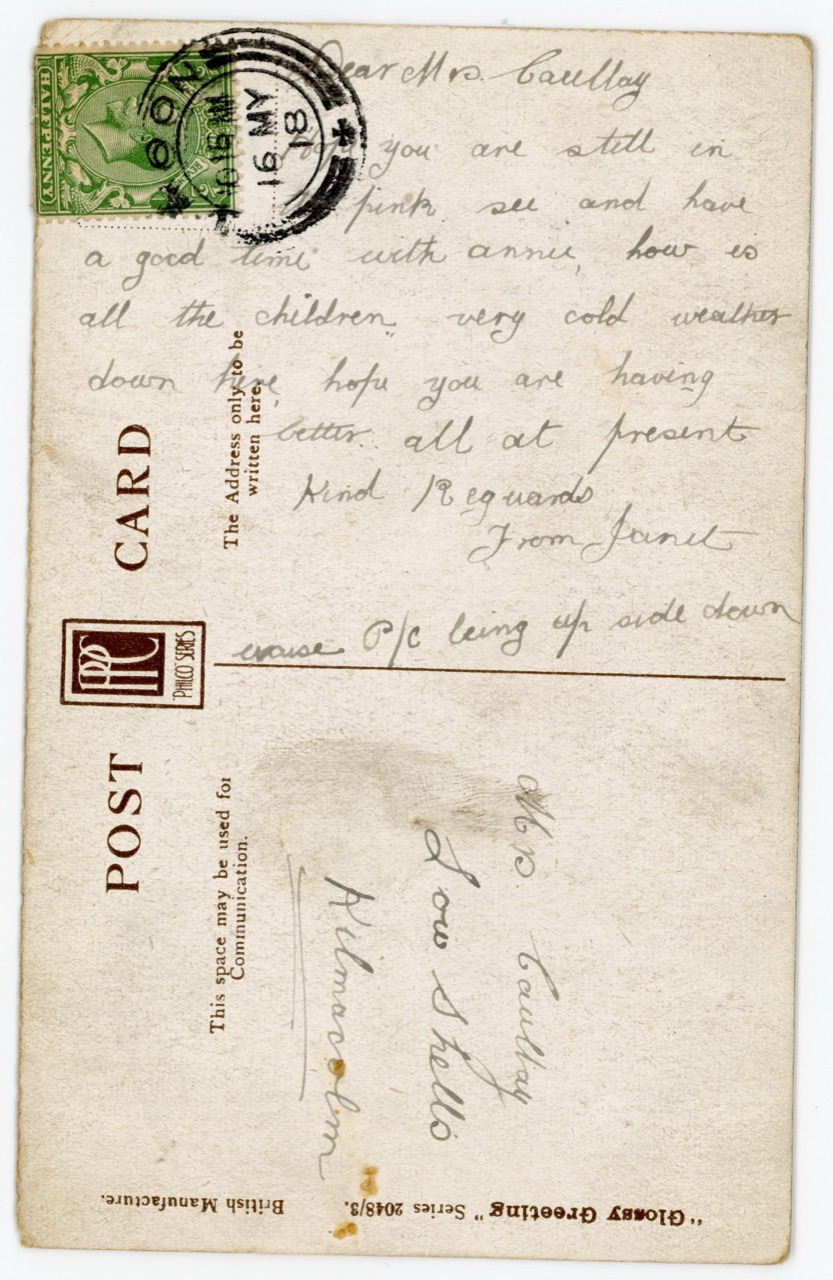 Dear Mrs. Caullay
Hope you are still in
pink see and have
a good time with annie, how is
all the children, very cold weather
down here, hope you are having
better. all at present
Kind Reguards
From Janet
P/c being up side down
HALFPENNY
16 MY
18
POST CARD
PHILCO SERIES
The Address only to be
written here.
This space may be used for
Communication.
Mrs. Caullay
Low Shells
Kilmacolm
"Glossy Greeting" Series 2048/3.
British Manufacture.